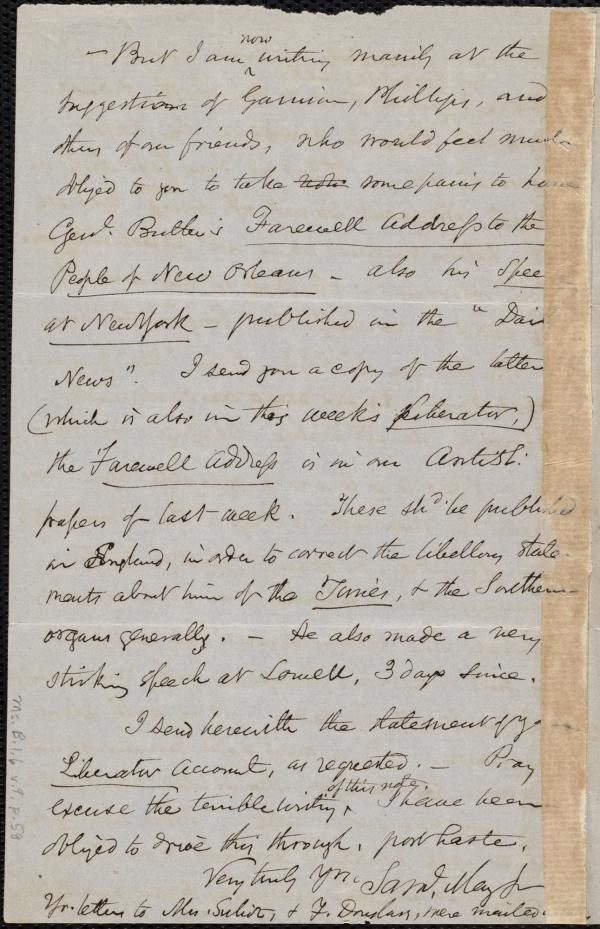 — But I am now writing mainly at the
suggestion of Garrison, Phillips, and
others of our friends, who would feel much
oblig'd to you to take some pains to have
Genl. Butler's Farewell Address to the
People of New Orleans — also his Spee
at New York — published in the "Dai
News". I send you a copy of the latter
(which is also in this week's Liberator,)
the Farewell Address is in our Antisl.
papers of last week. These shd. be published
in England, in order to correct the libellous state-
ments about him of the Times, & the Southern
organs generally. — He also made a very
striking speech at Lowell, 3 days since.
I send herewith the statement of yr
Liberator Account, as requested. — Pray
excuse the terrible writing of this note. I have been
oblig'd to drive this through, post haste.
Very truly Yrs. Saml. May Jr
Yr. letters to Mrs. & F. Douglass, were mailed
Ms. B.1.6 v.9 p.58